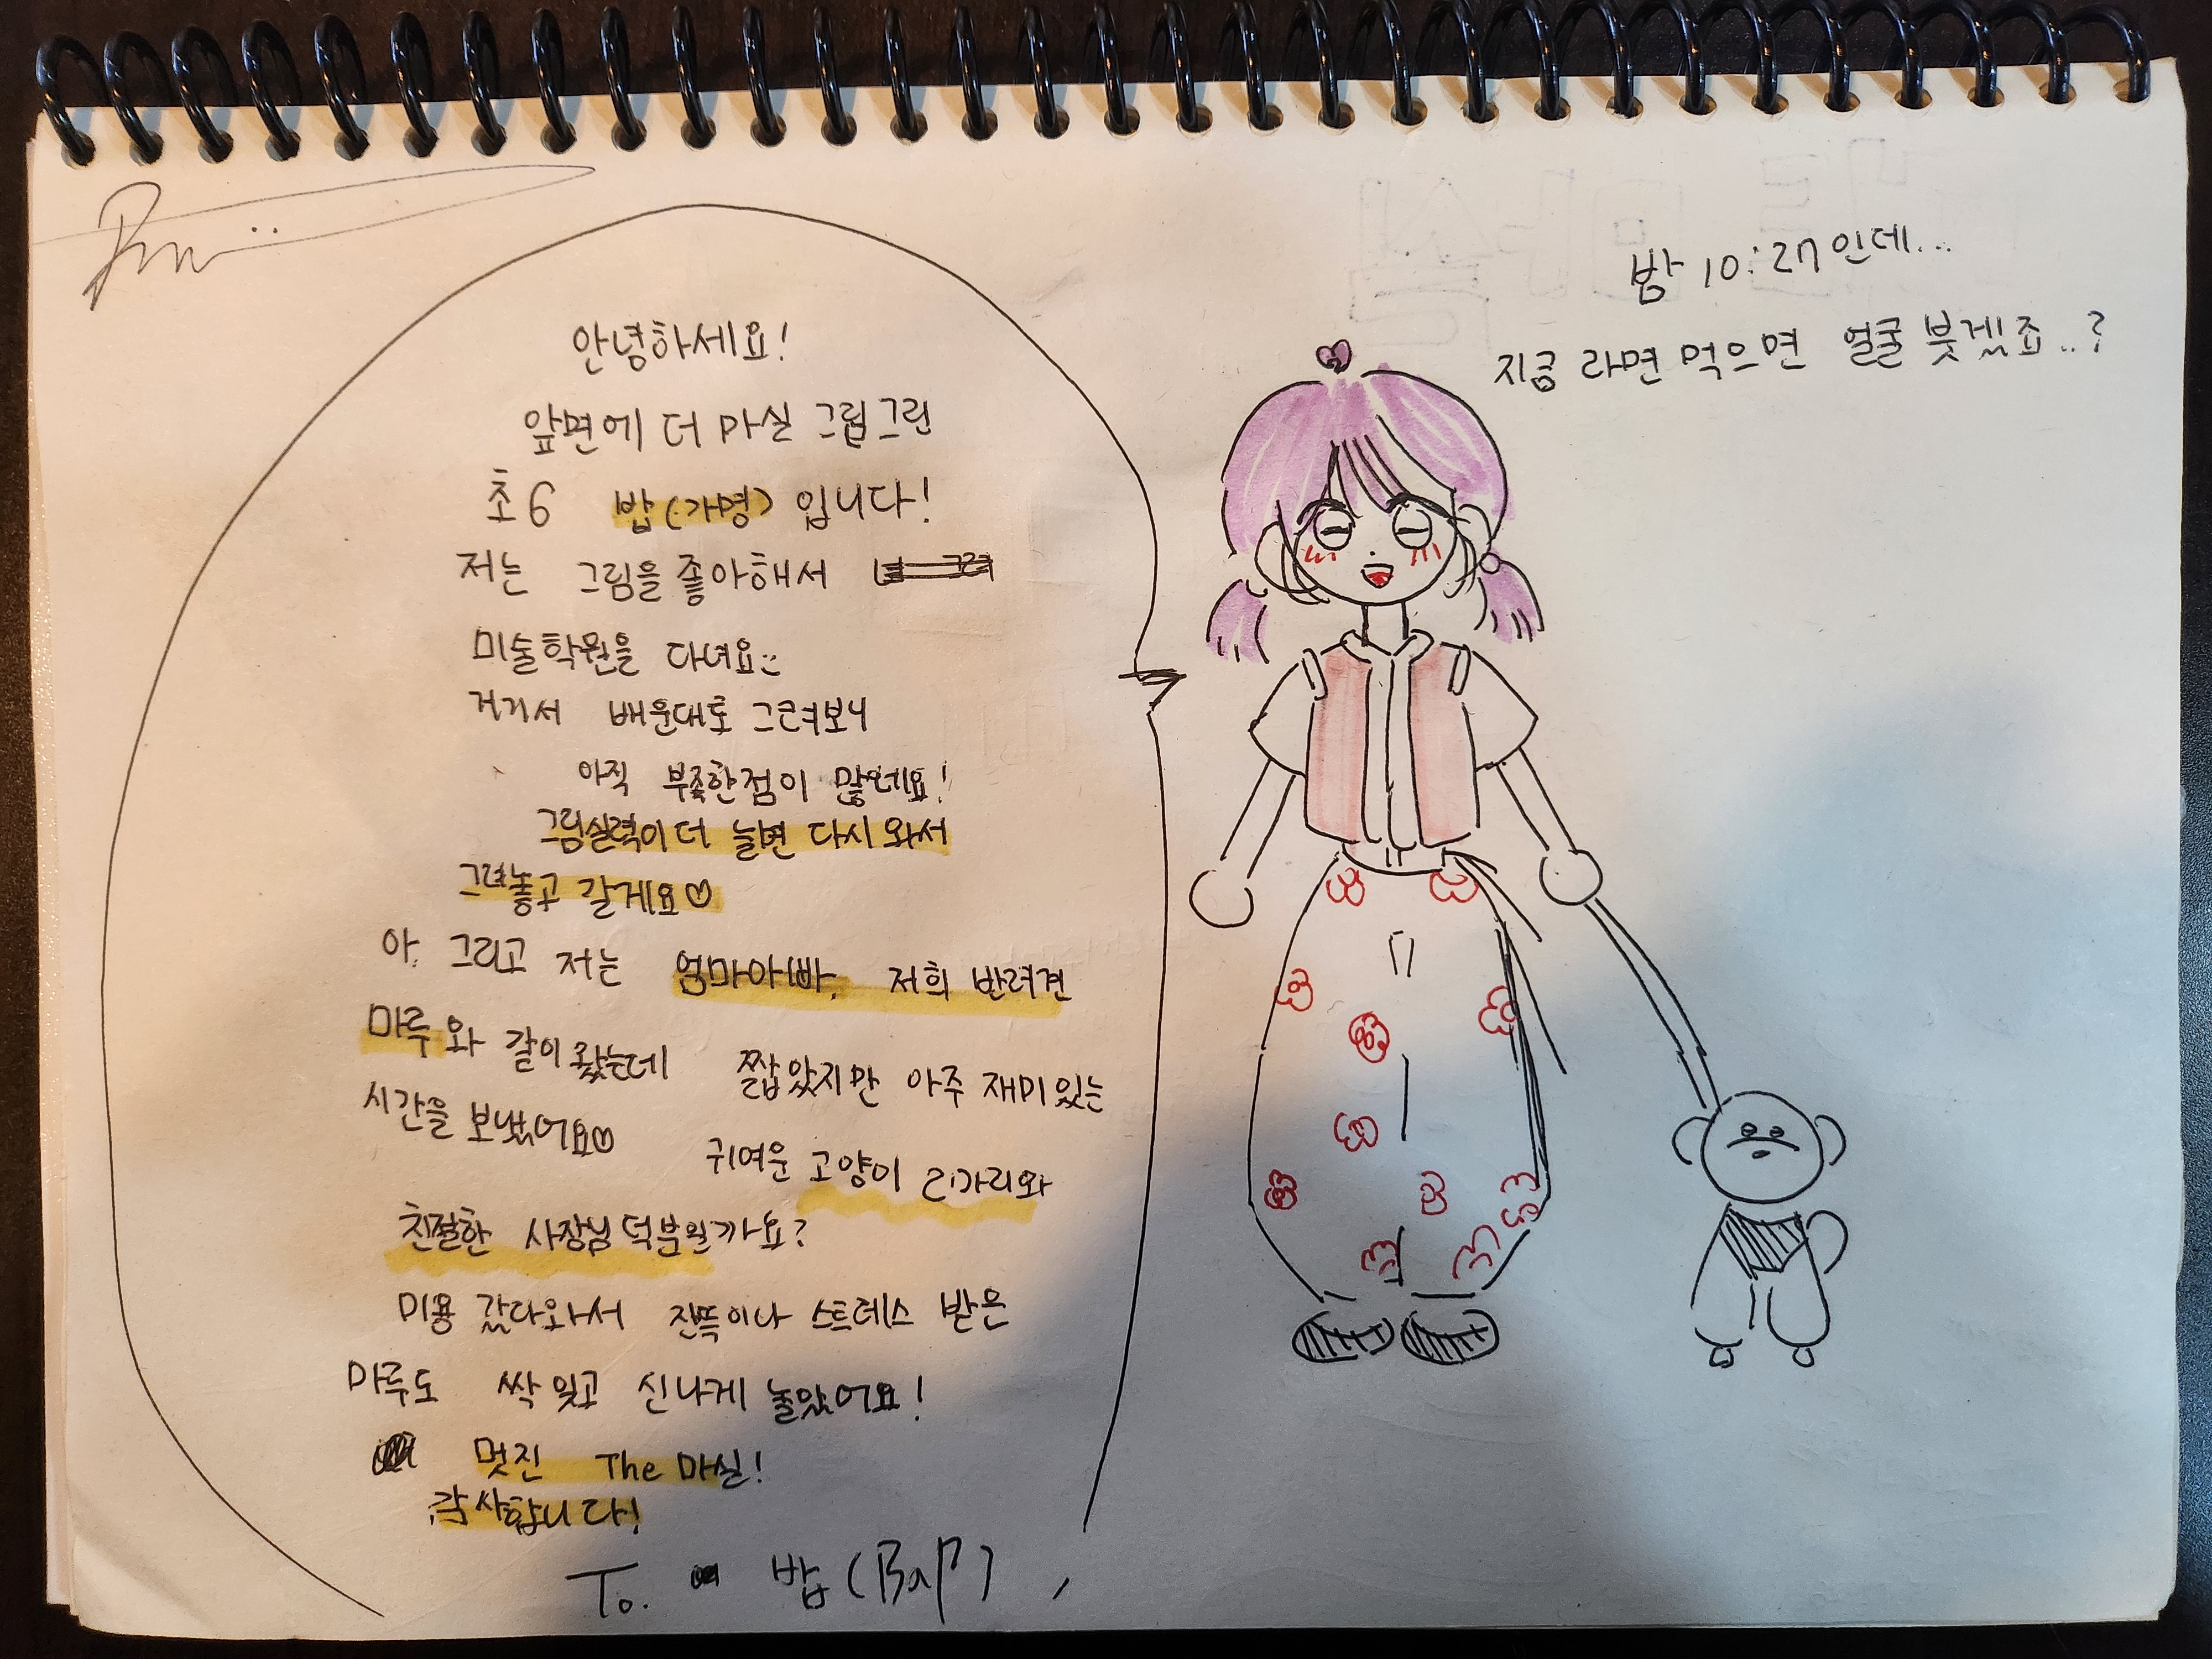 안녕하세요!
앞면에 더 마실 그림그린
초6 밥(가명) 입니다!
저는 그림을 좋아해서
미술학원을 다녀요
거기서 배운대로 그려보니
아직 부족한점이 많네요!
그림실력이 더 늘면 다시 와서
그려놓고 갈게요♡
아. 그리고 저는 엄마아빠, 저희 반려견
마루와 같이 왔는데 짧았지만 아주 재미있는
시간을 보냈어요♡
귀여운 고양이 리가리와
친절한 사장님 덕분일까요?
미용 갔다와서 잔뜩이나 스트레스 받은
마루도 싹 잊고 신나게 놀았어요!
멋진 The 마실!
감사합니다!
To. 밥(BaP)
밤 10:27인데...
지금 라면 먹으면 얼굴 붓겠죠..?